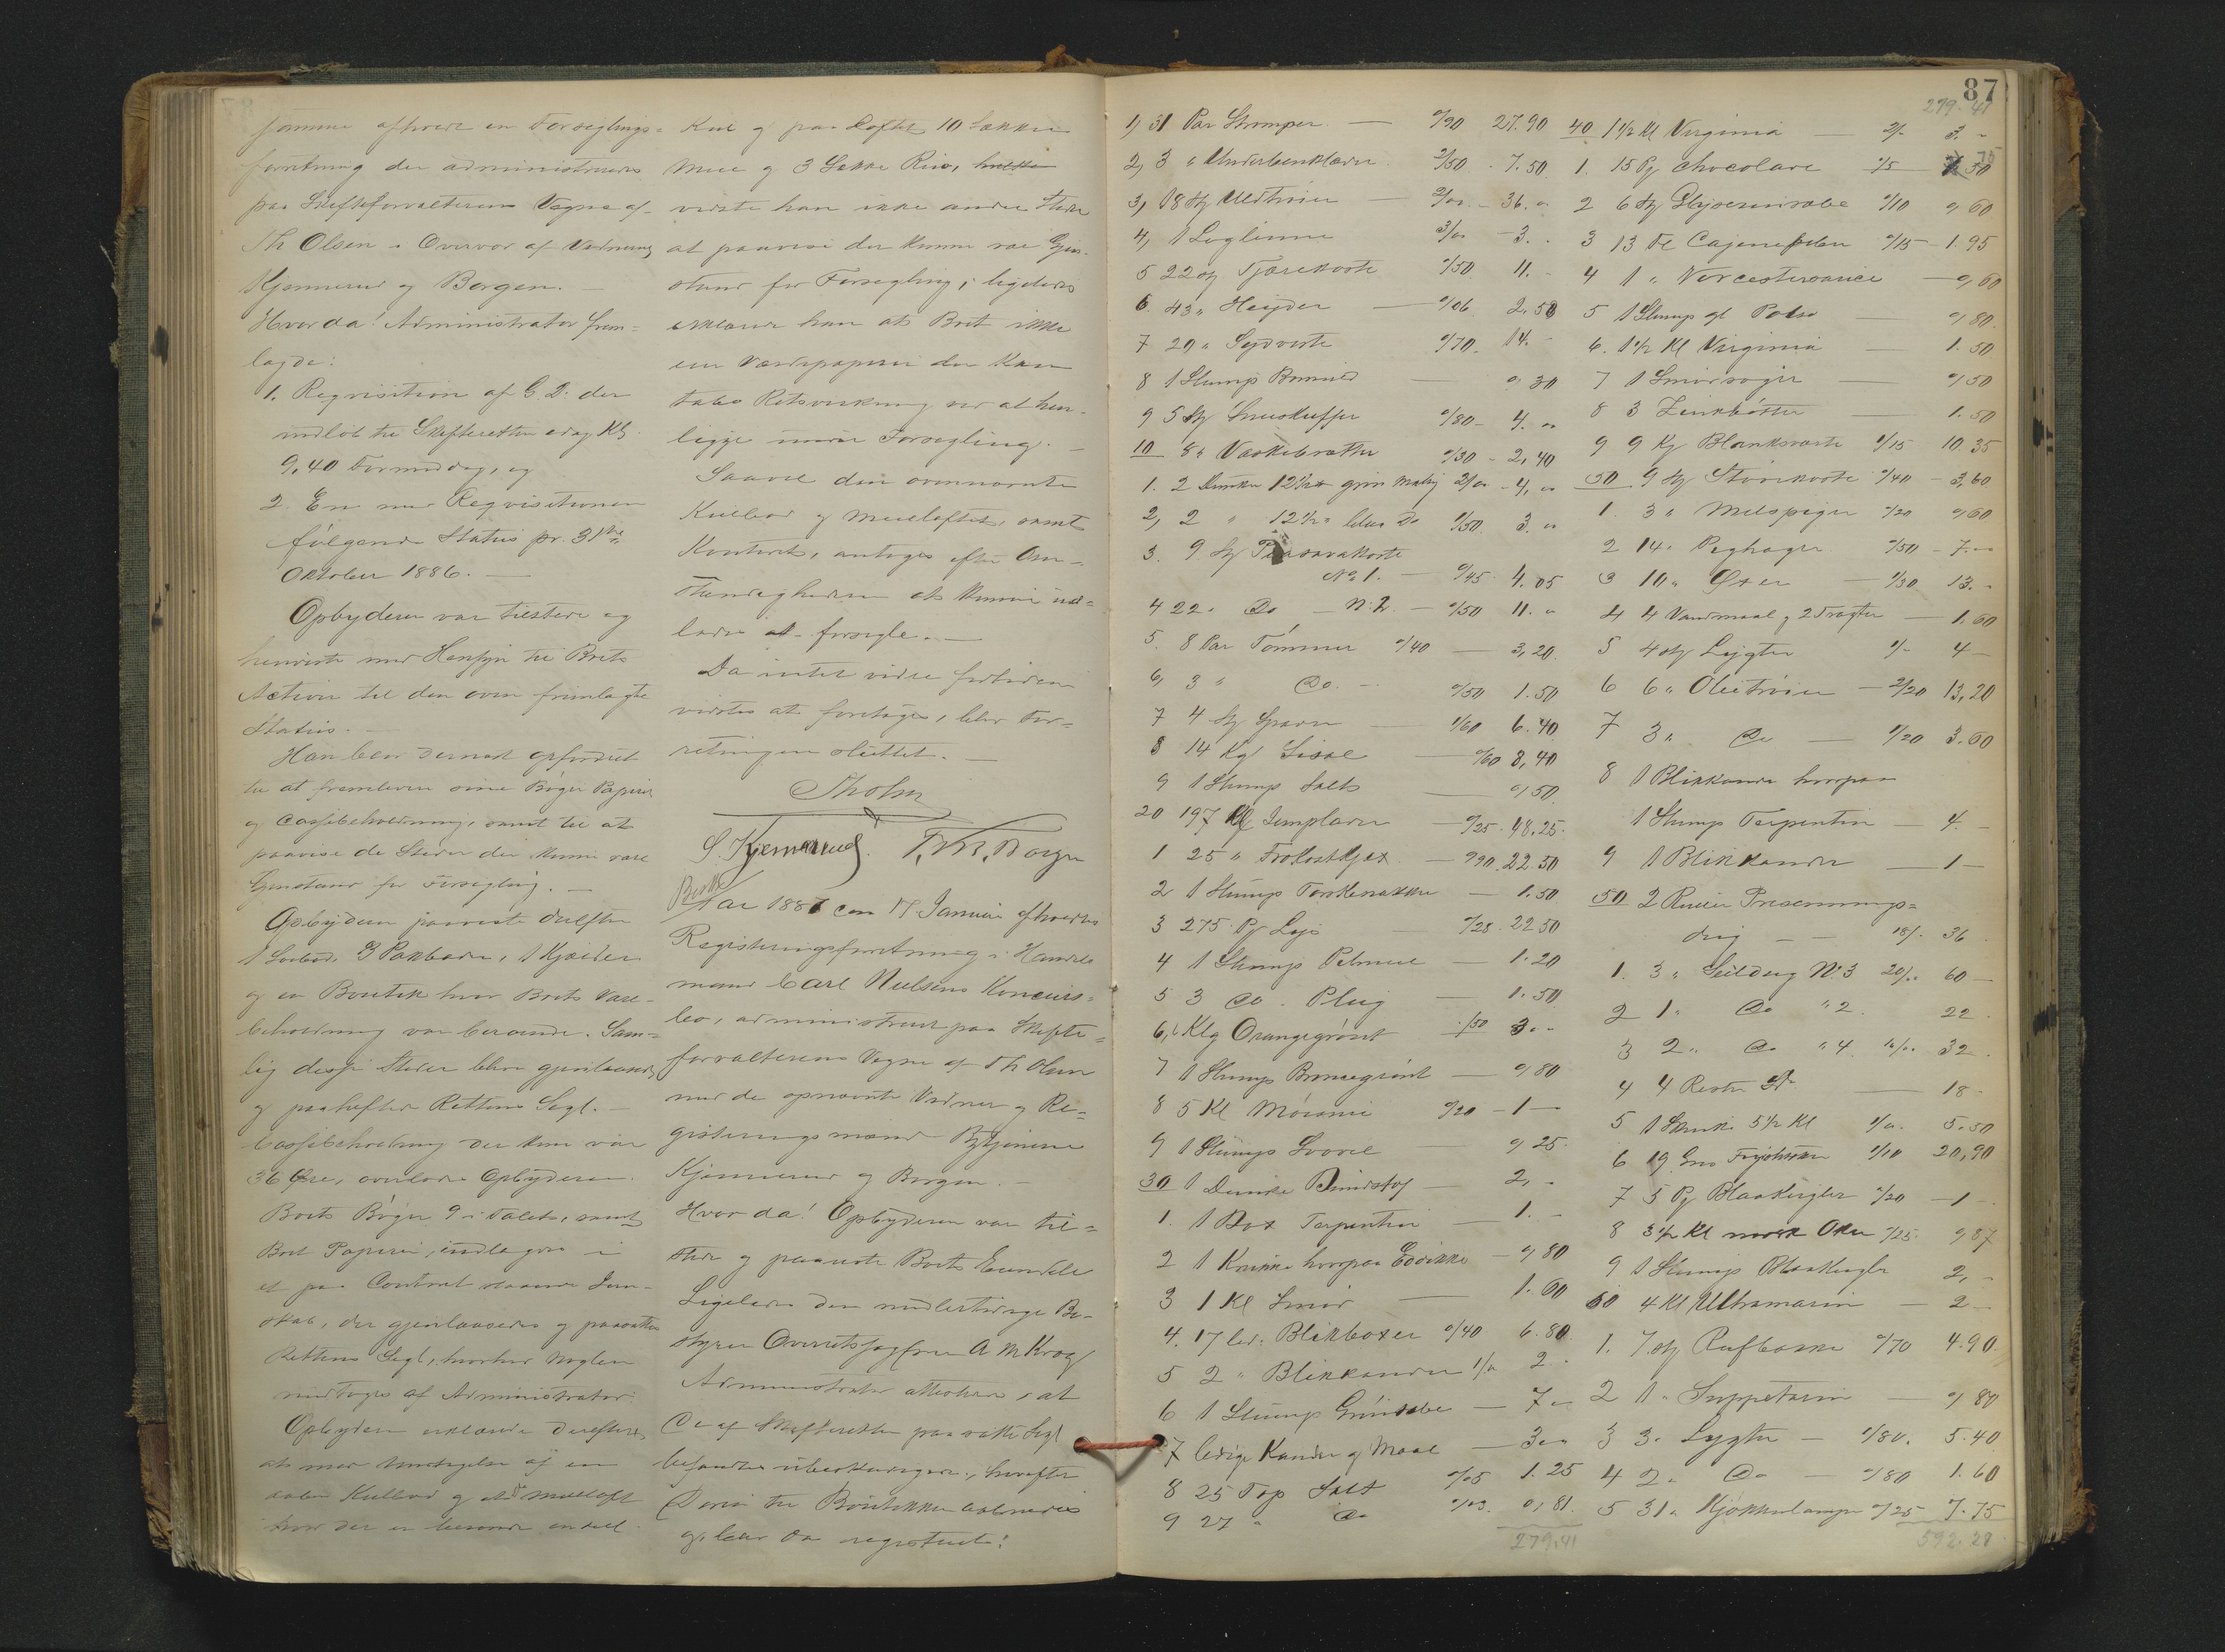 samme afholdt en Forseglings=
forretning der administreredes
paa Skifteforvalterens Vegne af
Th Olsen i Overvær af Vidnerne
Kjemmerud og Borgen. —
Hvorda! Administrator frem=
lagde:
1. Reqvisition af G. D. der
indløb til Skifteretten idag Kl
9,40 Formiddag, og
2. En med Reqvisitionen
følgende Status pr. 31te
Oktober 1886. —
Opbyderen var tilstede og
henviste med Hensyn til Boets
Activer til den oven fremlagte
Status. —
Han blev dernæst opfordret
til at fremlevere sine Bøger Papirer
og Cassebeholdning, samt til at
paavise de Steder der kunne være
Gjenstand for Forsegling. —
Opbyderen paaviste derefter
1 Sobod, 3 Pakboder, 1 Kjælder
og en Boutik hvor Boets Vare-
beholdning var beroende. Sam=
lig disse Steder blev gjenlaasede
og paaheftet Rettens Segl. —
Cassebeholdning der kun var
36 Øre, overlodes Opbyderen.
Boets Bøger 9 i Tallet, samt
Boets Papirer, indlagdes i
et paa Contoret staaende
skab, der gjenlaasedes og paasattes
Rettens Segl, hvorhos Nøglen
modtoges af Administrator.
Opbyderen erklærede derefter,
at med Undtagelse af en
aaben Kulbod og et Melloft
hvor der er beroende endel
Kul og paa Loftet 10 Sække
Mel og 3 Sække Ris,
vidste han ikke andre Steder
at paavise der kunne være Gjen-
stand for Forsegling; ligeledes
erklærede han at Boet ikke
eier Værdipapirer der kan
tabe Retsvirkning ved at hen-
ligge under Forsegling. —
Saavel den ovennævnte
Kulbod og Melloftet, samt
Kontoret, antoges efter Om-
stændighederne at kunne und=
lades at forsegle. —
Da intet videre fortiden
vidstes at foretages, blev For=
retningen sluttet. —
Th Olsen
S. Kjemmerud. Borgen
Aar 1887 den 17 Januar afholdtes
Registeringsforretning i Handels
mand Carl Nielsens Koncurs=
bo, administreret paa Skifte=
forvalterens Vegne af Th Olsen
med de opnævnte Vidner og Re=
gisteringsmænd
Kjemmerud og Borgen. —
Hvor da! Opbyderen var til=
stede og paaviste Boets Eiendele
Ligeledes den midlertidige Be-
styrer Overretssagfører A M Krog
Administrator attesterede, at
De af Skifteretten paasatte Segl
befandtes ubeskadigede, hvorefter
Døren til Boutikken aabnedes
og blev da registreret:
87
279.41
1) 31 Par Strømper — 0/90 27.90
2) 3 " Underbenklæder 2/50 - 7.50
3) 18 St Uldtrøier — 2/00 - 36. "
4) 1 Loglinne 3/00 - 3. "
5 22 St. Tjærekoste 0/50 11. -
6. 43 " Heyder — 0/06 2.58
7 20 " Sydveste 0/70. 14. -
8 1 Slump — 0,30
9 5 St Sneskuffer 0/80 - 4. "
10 8 " Vaskebrætter 0/30 - 2,40
1. 2 Dunke 12½ grøn Maling 2/00 - 4, "
2, 2 " 12½ " blaa Do 1/50. 3. "
3. 9 St Piasavakoste
No 1. — 0/45 4.05
4 22 " Do — N. 2. — 0/50 11. "
5. 8 Par Tømmer 0/40 — 3,20.
6, 3 " Do. — 0/50 1.50
7 4 St Sparer — 1/60 6.40
8 14 Kg Sisal — 0/60 8,40
9 1 Slump Salt — 0,50
20 197 — 0/25. 48.25.
1 25 " Frokostkjæx — 0/90 22.50
2 1 Slump — 1.50
3 275 — 0/28 22.50
4 1 Slump — 1.20
5 3 Do. Plug — 1.50
6, 6 Klg Orangegrønt - /50 3. -
7 1 Slump Broncegrønt — 0,80
8 5 Kl Mønnie 0/20 — 1 —
9 1 Slump Svovel 0,25
30 1 Dunke — 2, -
1. 1 Box Terpentin — 1. -
2 1 Krukke hvorpaa Eddikke — 0,80
3 1 Kl Smør — 1.00
4. 17 led. Blikboxer 0/40 6.80
5 2 " Blikkander 1/" 2 -
6 1 Slump Grønsæbe — 7 "
7 ledige Kander og Maal — 3 "
8 25 Top Salt 0/05 1.25
9 27 " Do 0/03. 0,81.
279,41
40 1½ Kl Virginia — 2/- 3. -
1. 15 Pg Chocolade 0/5
2 6 St Glyserinsæbe 0/10 0,60
3 13 Fl Cajennepeber 0/15 - 1.95
4 1 " Vorcestersauce — 0,60
5 1 Slump gl — 0,80.
6. 1½ Kl Virginia — 1.50
7 1 — 0,50
8 3 Zinkbøtter — 1.50
9 9 Kg Blanksværte 1/15 10.35
50 9 St Støvekoste 0/40 - 3,60
1. 3 " Melspiger 0/20 0,60
2 14 " 0/50 - 7. "
3 10 " Øxer — 1/30 13. -
4 4 Vandmaal og 2 Tragter — 1,60
5 4 St Lygter 1/- 4 —
6 6 " Olietrøier — 2/20 13,20
7 3 " Do — 1/20 3.60
8 1 Blikkande hvorpaa
1 Slump Terpentin — 4. -
9 1 Blikkande — 1 —
50 2 Ruller Presennings=
dug — — 18/- 36
1. 3 " Seildug No. 3 20/" 60 —
2 1 " Do " 2. 22.
3 2 " Do " 4. 16/" 32.
4 4 Rester Do — 18 -
5 1 5½ Kl 1/" 5.50
6 19 1/10 20,90
7 5 Pg Blaakugler 0/20 - 1 -
8 3½ Kl mørk Oker 0/25 0,87
9 1 Slump Blaakugler 2, -
60 4 Kl Ultramarin — 2 —
1. 7 St 0/70 4.90.
2 1 " Suppeterin — 0,80
3 3 " Lygter — 1/80. 5.40
4 2 " Do — 0/80 1.60
5 31 " Kjøkkenlamper 0/25 7.75
592.28